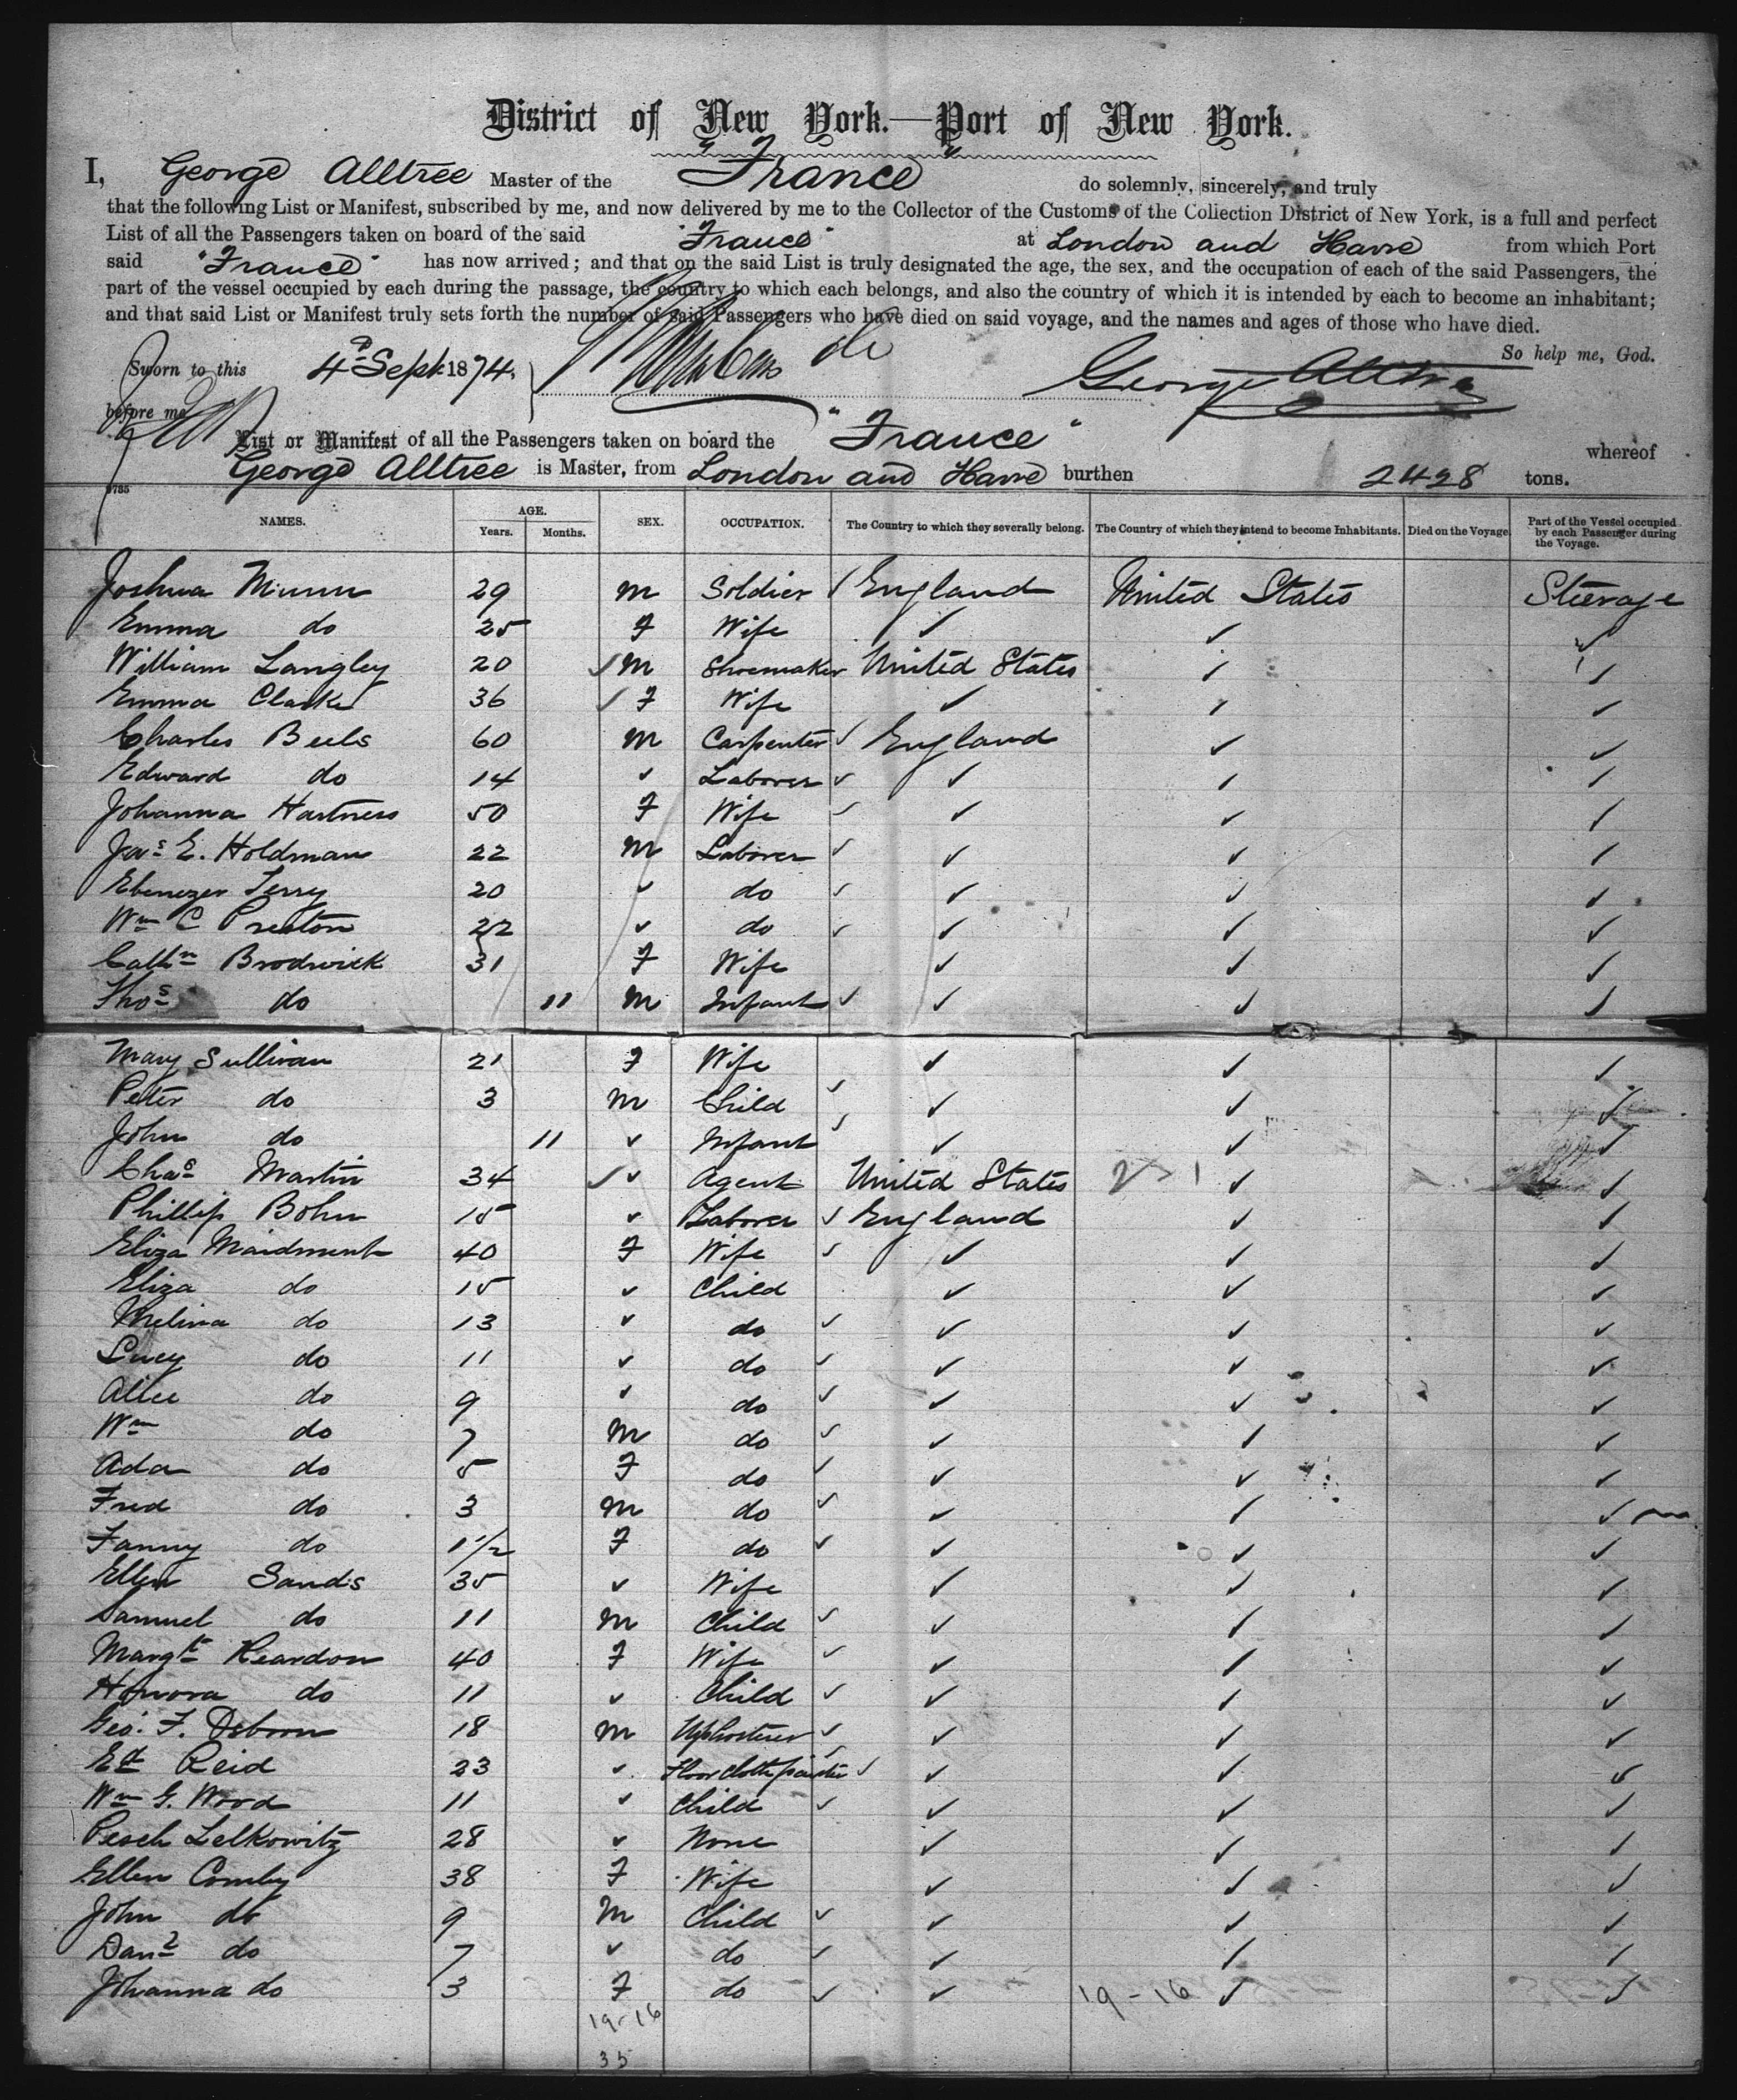 District of New York.—Port of New York.
I, George Alltree Master of the "France" do solemnly, sincerely, and truly
that the following List or Manifest, subscribed by me, and now delivered by me to the Collector of the Customs of the Collection District of New York, is a full and perfect
List of all the Passengers taken on board of the said "France" at London and Havre from which Port
said "France" has now arrived; and that on the said List is truly designated the age, the sex, and the occupation of each of the said Passengers, the
part of the vessel occupied by each during the passage, the country to which each belongs, and also the country of which it is intended by each to become an inhabitant;
and that said List or Manifest truly sets forth the number of said Passengers who have died on said voyage, and the names and ages of those who have died.
So help me, God.
Sworn to this 4th Sept 1874. George Alltree
before me
List or Manifest of all the Passengers taken on board the "France" whereof
George Alltree is Master, from London and Havre burthen 2428 tons.
9785
NAMES. AGE. Years. Months. SEX. OCCUPATION. The Country to which they severally belong. The Country of which they intend to become Inhabitants. Died on the Voyage. Part of the Vessel occupied by each Passenger during the Voyage.
Joshua Munn 29 M Soldier ✓ England United States Steerage
Emma do 25 F Wife ✓ ✓ ✓
William Langley 20 ✓ M Shoemaker United States ✓ ✓
Emma Clarke 36 ✓ F Wife ✓ ✓ ✓
Charles Beels 60 M Carpenter ✓ England ✓ ✓
Edward do 14 ✓ Laborer ✓ ✓ ✓ ✓
Johanna Hartness 50 F Wife ✓ ✓ ✓ ✓
Jas E. Holdman 22 M Laborer ✓ ✓ ✓ ✓
Ebenezer Terry 20 ✓ do ✓ ✓ ✓ ✓
Wm C Preston 22 ✓ do ✓ ✓ ✓ ✓
Cathn Brodwick 31 F Wife ✓ ✓ ✓
Thos do 11 M Infant ✓ ✓ ✓ ✓
Mary Sullivan 21 F Wife ✓ ✓ ✓
Peter do 3 M Child ✓ ✓ ✓ ✓
John do 11 ✓ Infant ✓ ✓ ✓ ✓
Chas Martin 34 ✓ ✓ Agent United States ✓ ✓
Phillip Bohn 15 ✓ Laborer ✓ England ✓ ✓
Eliza Maidment 40 F Wife ✓ ✓ ✓ ✓
Eliza do 15 ✓ Child ✓ ✓ ✓
Melina do 13 ✓ do ✓ ✓ ✓ ✓
Lucy do 11 ✓ do ✓ ✓ ✓ ✓
Alice do 9 ✓ do ✓ ✓ ✓ ✓
Wm do 7 M do ✓ ✓ ✓ ✓
Ada do 5 F do ✓ ✓ ✓ ✓
Fred do 3 M do ✓ ✓ ✓ ✓
Fanny do 1 1/2 F do ✓ ✓ ✓ ✓
Ellen Sandis 35 ✓ Wife ✓ ✓ ✓
Samuel do 11 M Child ✓ ✓ ✓ ✓
Margt Reardon 40 F Wife ✓ ✓ ✓ ✓
Honora do 11 ✓ Child ✓ ✓ ✓ ✓
Geo. F. Osborn 18 M Upholsterer ✓ ✓ ✓ ✓
Ed Reid 23 ✓ Floor cloth painter ✓ ✓ ✓ ✓
Wm G. Wood 11 ✓ Child ✓ ✓ ✓ ✓
Pesch Lelkowitz 28 ✓ None ✓ ✓ ✓
Ellen Comby 38 F Wife ✓ ✓ ✓
John do 9 M Child ✓ ✓ ✓ ✓
Danl do 7 ✓ do ✓ ✓ ✓ ✓
Johanna do 3 F do ✓ ✓ 19-16 ✓ ✓
19-16
35